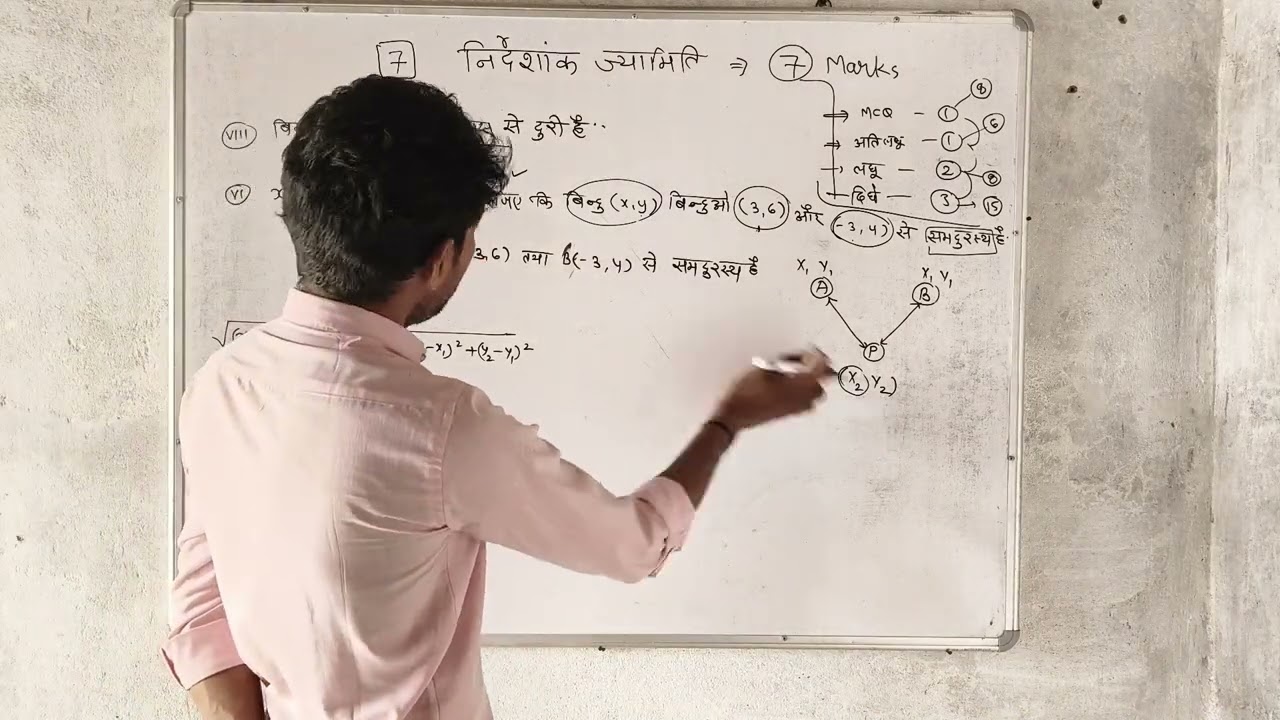 7 निर्देशांक ज्यामिति ⇒ 7 Marks
⇒ MCQ – 1 8
⇒ अतिलघु – 1 6
→ लघु – 2 8
दिर्घ – 3 → 15
VIII से दुरी है..
VI कि बिन्दु (x,y) बिन्दुओ (3,6) और (-3,4) से समदुरस्थ है.
3,6) तथा B(-3,4) से समदुरस्थ है
x₁ y₁ x₁ y₁
A B
P
(x₂ y₂)
-x₁)² + (y₂-y₁)²